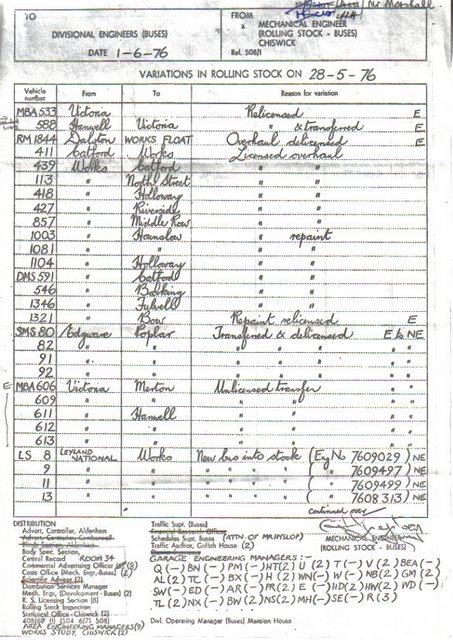 TO
DIVISIONAL ENGINEERS (BUSES)
DATE 1-6-76
FROM
MECHANICAL ENGINEER
(ROLLING STOCK - BUSES)
CHISWICK
Ref. 508/1
Mr Marshall
VARIATIONS IN ROLLING STOCK ON 28-5-76
Vehicle number From To Reason for variation
MBA 533 Victoria Relicensed E
588 Hanwell Victoria " & transferred E
RM 1844 Dalston WORKS FLOAT Overhaul delicensed E
411 Catford Works Licensed overhaul
439 Works Catford " "
113 " North Street " "
418 " Holloway " "
427 " Riverside " "
857 " Middle Row " "
1003 " Hounslow " repaint
1081 " " " "
1104 " Holloway " "
DMS 591 " Catford " "
546 " Barking " "
1346 " Fulwell " "
1321 " Bow Repaint relicensed E
SMS 80 Edgware Poplar Transferred & delicensed E to NE
82 " " " " " " "
91 " " " " " " "
92 " " " " " " "
MBA 606 Victoria Merton Unlicensed transfer " "
609 " " " " " "
611 " Hanwell " " " "
612 " " " " " "
613 " " " " " "
LS 8 LEYLAND NATIONAL Works New bus into stock (Eng No 7609029) NE
9 " " " " " " ( " " 7609497) NE
11 " " " " " " ( " " 7609499) NE
13 " " " " " " ( " " 7608313) NE
continued over
MECHANICAL ENGINEER
(ROLLING STOCK - BUSES)
DISTRIBUTION
Advert. Controller, Aldenham
Advert. Controller, Camberwell
Body Spec. Section,
Central Record ROOM 34
Commercial Advertising Officer
Costs Office (Mech. Engr. Buses) (2)
Scientific Adviser (2)
Distribution Services Manager
Mech. Engr. (Development - Buses) (2)
R. S. Licensing Section (8)
Rolling Stock Inspection
Statistical Office - Chiswick (2)
AREA ENGINEERING MANAGERS
WORKS STUDY, CHISWICK (2)
Traffic Supt. (Buses)
Financial Research Officer
Schedules Supt. (Buses) (ATTN. OF MR HYSLOP)
Traffic Auditor, Griffith House (2)
GARAGE ENGINEERING MANAGERS :-
Q (-) BN (-) PM (-) HT (2) U (2) T (-) V (2) BEA (-)
AL (2) TC (-) BX (-) H (2) WN (-) W (-) NB (2) GM (2)
SW (-) ED (-) AR (-) PR (2) E (-) HD (2) HW (2) WD (-)
TL (2) NX (-) BW (2) NS (2) MH (-) SE (-) R (3)
Divl. Operating Manager (Buses) Mansion House